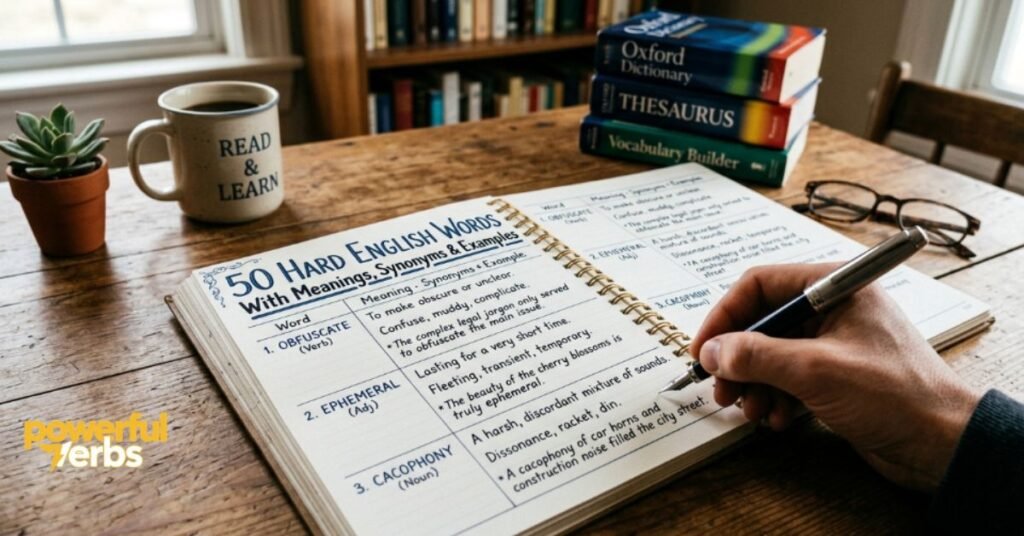 READ
&
LEARN
Oxford
Dictionary
THESAURUS
Vocabulary Builder
50 HARD ENGLISH WORDS
With Meanings, Synonyms & Examples
Word
Meaning · Synonyms · Example
1. OBFUSCATE
(Verb)
To make obscure or unclear.
Confuse, muddy, complicate.
* The complex legal jargon only served
to obfuscate the main issue.
2. EPHEMERAL
(Adj)
Lasting for a very short time.
Fleeting, transient, temporary.
* The beauty of the cherry blossoms is
truly ephemeral.
3. CACOPHONY
(Noun)
A harsh, discordant mixture of sounds.
Dissonance, racket, din.
* A cacophony of car horns and
construction noise filled the city street.
Word
Meaning · Synonyms · Examples
1. OBFUSCATE
(Verb)
To make obscure or unclear.
Confuse, muddy, complicate.
2. EPHEMERAL
(Adj)
A harsh, discordant
mixture of sounds.
Dissonance, racket, temporary.
car horns and
construction noise filled the city
3. CACOPHONY
powerful
verbs